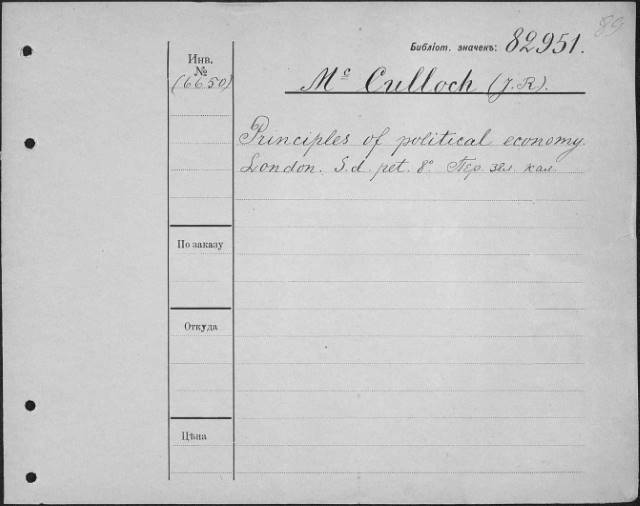 89
Библіот. значекъ: 82951.
Инв.
№
(6650)
Mc Culloch (J. R.).
Principles of political economy.
London. S. d. pet. 8°. Пер. зел. кал.
По заказу
Откуда
Цѣна